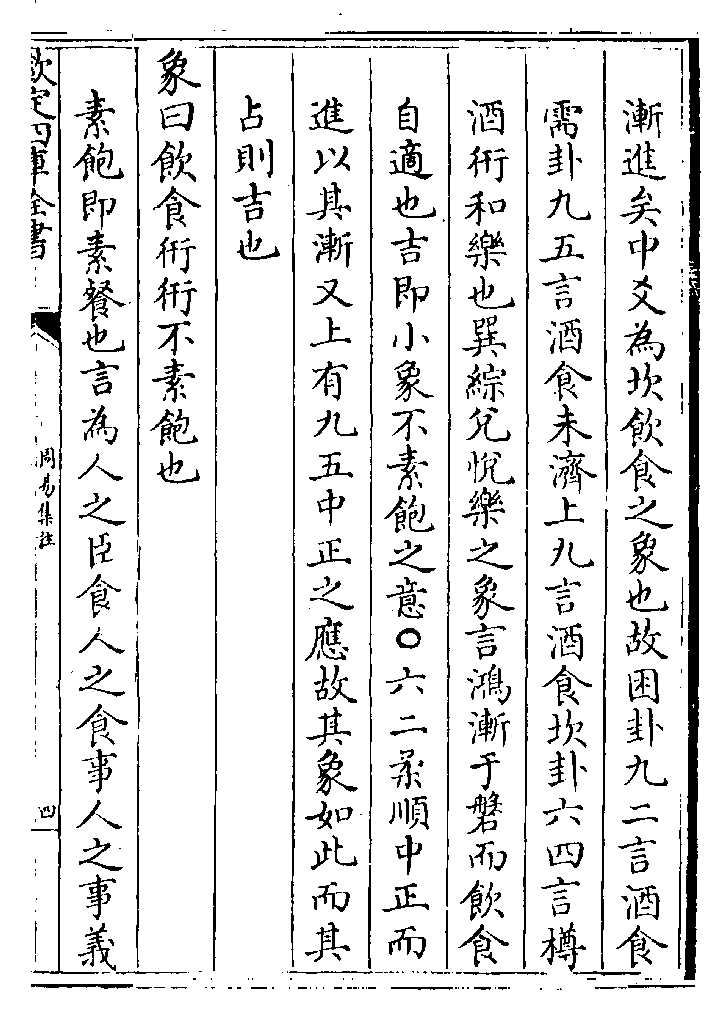 漸進矣中爻為坎飲食之象也故困卦九二言酒食
需卦九五言酒食未濟上九言酒食坎卦六四言樽
酒衎和樂也巽綜兌悅樂之象言鴻漸于磐而飲食
自適也吉即小象不素飽之意○六二柔順中正而
進以其漸又上有九五中正之應故其象如此而其
占則吉也
象曰飲食衎衎不素飽也
素飽即素餐也言為人之臣食人之食事人之事義
欽定四庫全書
周易集註
四